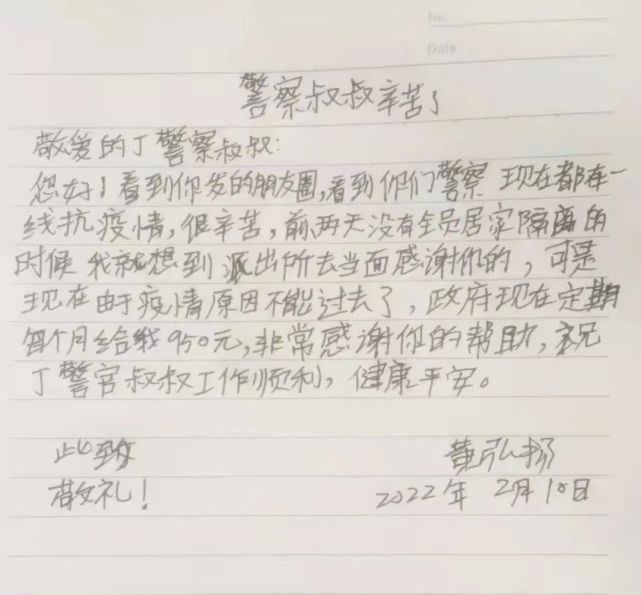 No.
Date
警察叔叔辛苦了
敬爱的丁警察叔叔:
您好！看到你发的朋友圈,看到你们警察 现在都在一
线抗疫情,很辛苦,前两天没有全员居家隔离的
时候 我就想到派出所去当面感谢你的,可是
现在由于疫情原因不能过去了,政府现在定期
每个月给我950元,非常感谢你的帮助,祝
丁警官叔叔工作顺利,健康平安。
此致
黄弘扬
敬礼!
2022年 2月10日